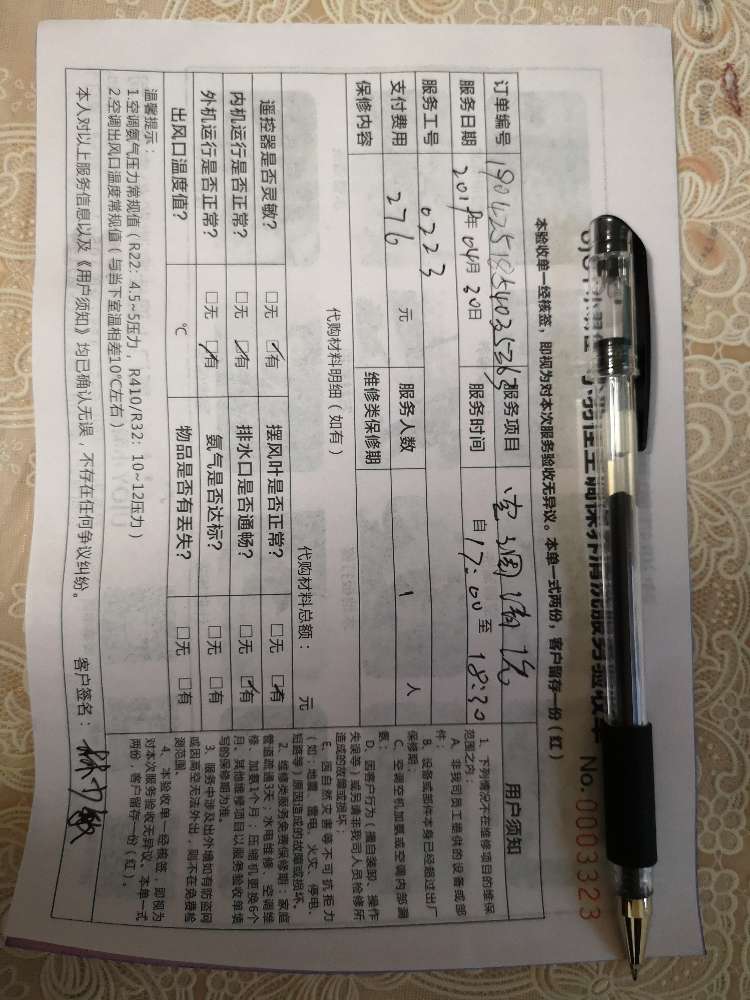 No. 0003323
本验收单一经核签，即视为对本次服务验收无异议。本单一式两份，客户留存一份（红）
订单编号 服务项目 空调清洗
服务日期 2019年 04月 30日 服务时间 自 17:00 至 18:30
服务工号 0223 服务人数 1 人
支付费用 276 元 维修类保修期
保修内容
代购材料明细（如有） 代购材料总额： 元
遥控器是否灵敏？ □无 ☑有 摆风叶是否正常？ □无 ☑有
内机运行是否正常？ □无 ☑有 排水口是否通畅？ □无 ☑有
外机运行是否正常？ □无 ☑有 氨气是否达标？ □无 □有
出风口温度值？ ℃ 物品是否有丢失？ □无 □有
温馨提示：
1.空调氨气压力常规值（R22：4.5~5压力，R410/R32：10~12压力）
2.空调出风口温度常规值（与当下室温相差10℃左右）
本人对以上服务信息以及《用户须知》均已确认无误，不存在任何争议纠纷。 客户签名：
用户须知
1、下列情况不在维修项目的维保
范围之内：
A、非我司员工提供的设备或部
件；
B、设备或部件本身已经超过出厂
保修期；
C、空调空机加氨或空调内部漏
氨；
D、因客户行为（擅自装卸、操作
失误等）或另请非我司人员检修所
造成的故障或损坏；
E、因自然灾害等不可抗拒力
（如：地震、雷电、火灾、停电、
短路等）原因造成的故障或损坏。
2、维修类服务免费保修期：家庭
管道疏通3天；水电维修、空调维
修、加氨1个月；压缩机更换6个
月；其他维修项目以服务验收单填
写的保修期为准。
3、服务中涉及出外墙如有防盗网
或因高空无法外出，则不在免费检
测范围。
4、本验收单一经核签；即视为
对本次服务验收无异议，本单一式
两份，客户留存一份（红）。